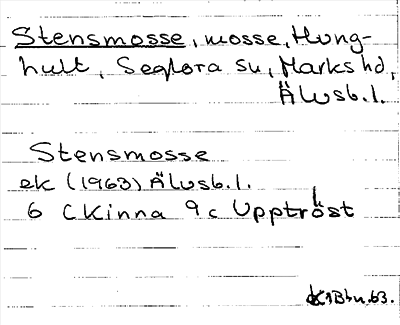 Stensmosse, mosse, Hung-
hult, Seglora sn, Marks hd,
Älvsb.l.
Stensmosse
ek (1963) Älvsb.l.
6 CKinna 9c Upptröst